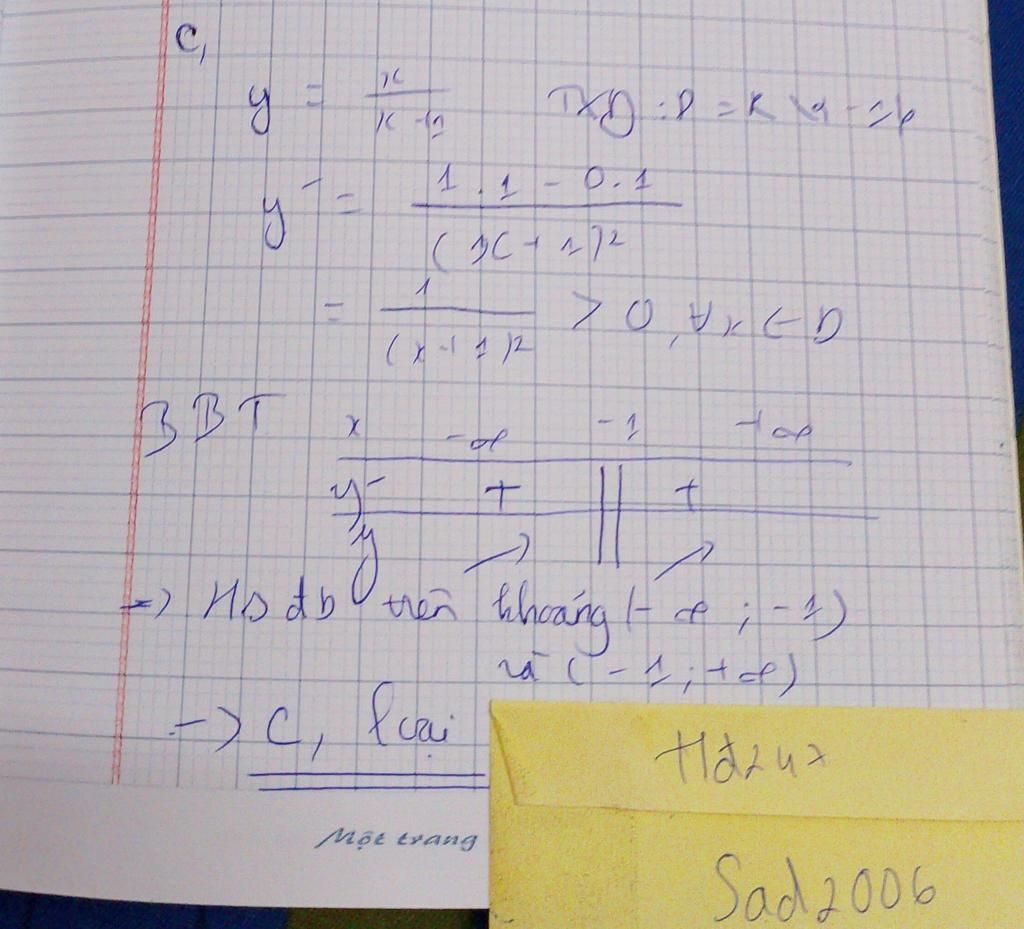 C,
y = x/(x+1) TXĐ : D = R \ {-1}
y' = (1.1 - 0.1)/(x+1)²
= 1/(x+1)² > 0, ∀x ∈ D
BBT x -∞ -1 +∞
y' + || +
y ↗ || ↗
=> HS đb trên khoảng (-∞ ; -1)
và (-1 ; +∞)
-> C, loại
Hđ247
Một trang
Sad2006